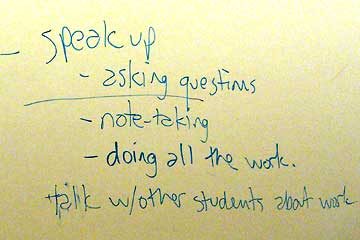 - speak up
- asking questions
- note-taking
- doing all the work.
talk w/other students about work